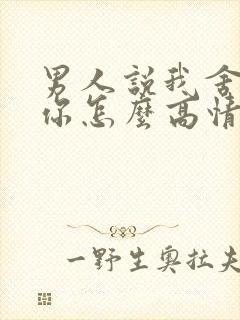 男人説我舍
你怎麽高情
一野生奥拉夫